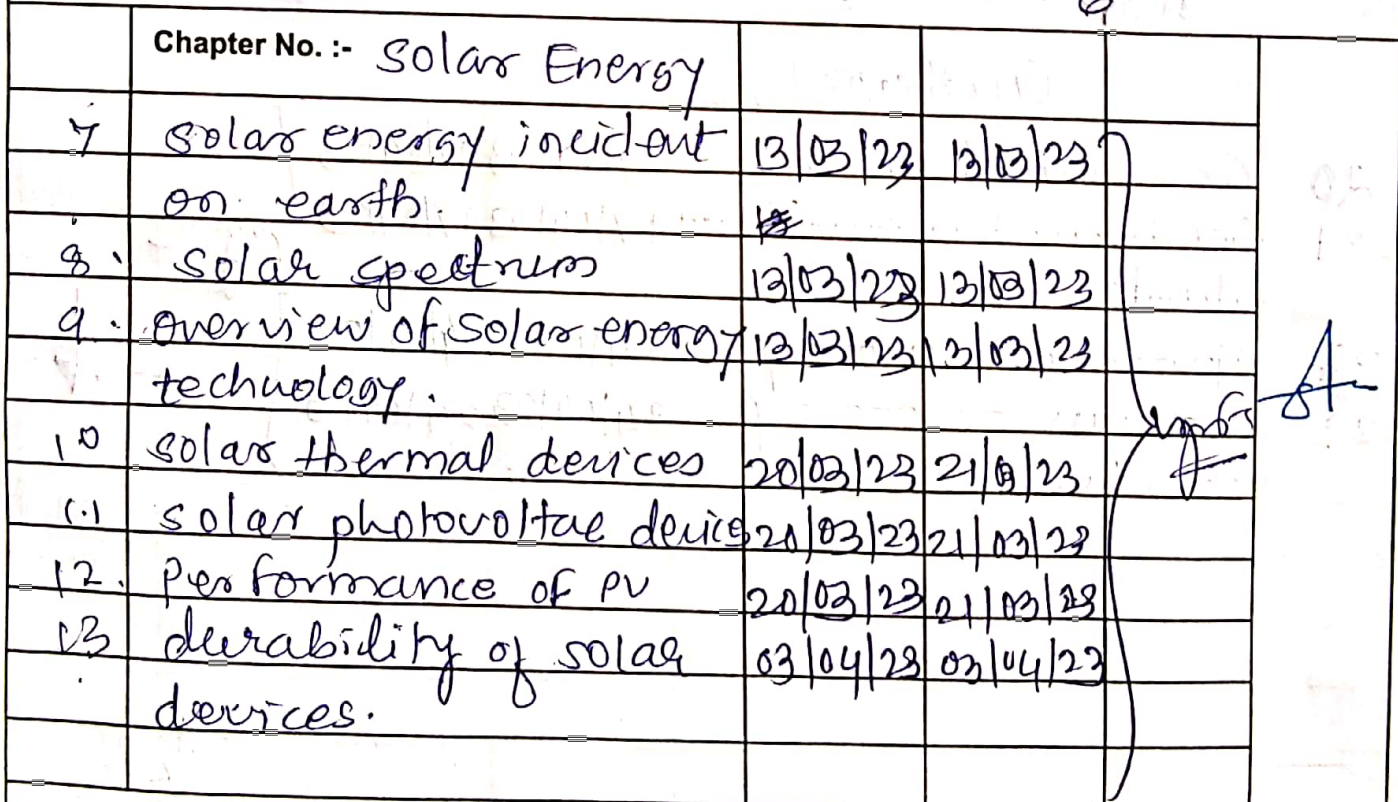 Chapter No. :- Solar Energy
7 solar energy incident 13/03/23 13/03/23
on earth.
8. solar spectrum 13/03/23 13/03/23
9. overview of solar energy 13/03/23 13/03/23
technology.
10 solar thermal devices 20/03/23 21/03/23
11 solar photovoltae device 20/03/23 21/03/23
12. Performance of PV 20/03/23 21/03/23
13 durability of solar 03/04/23 03/04/23
devices.